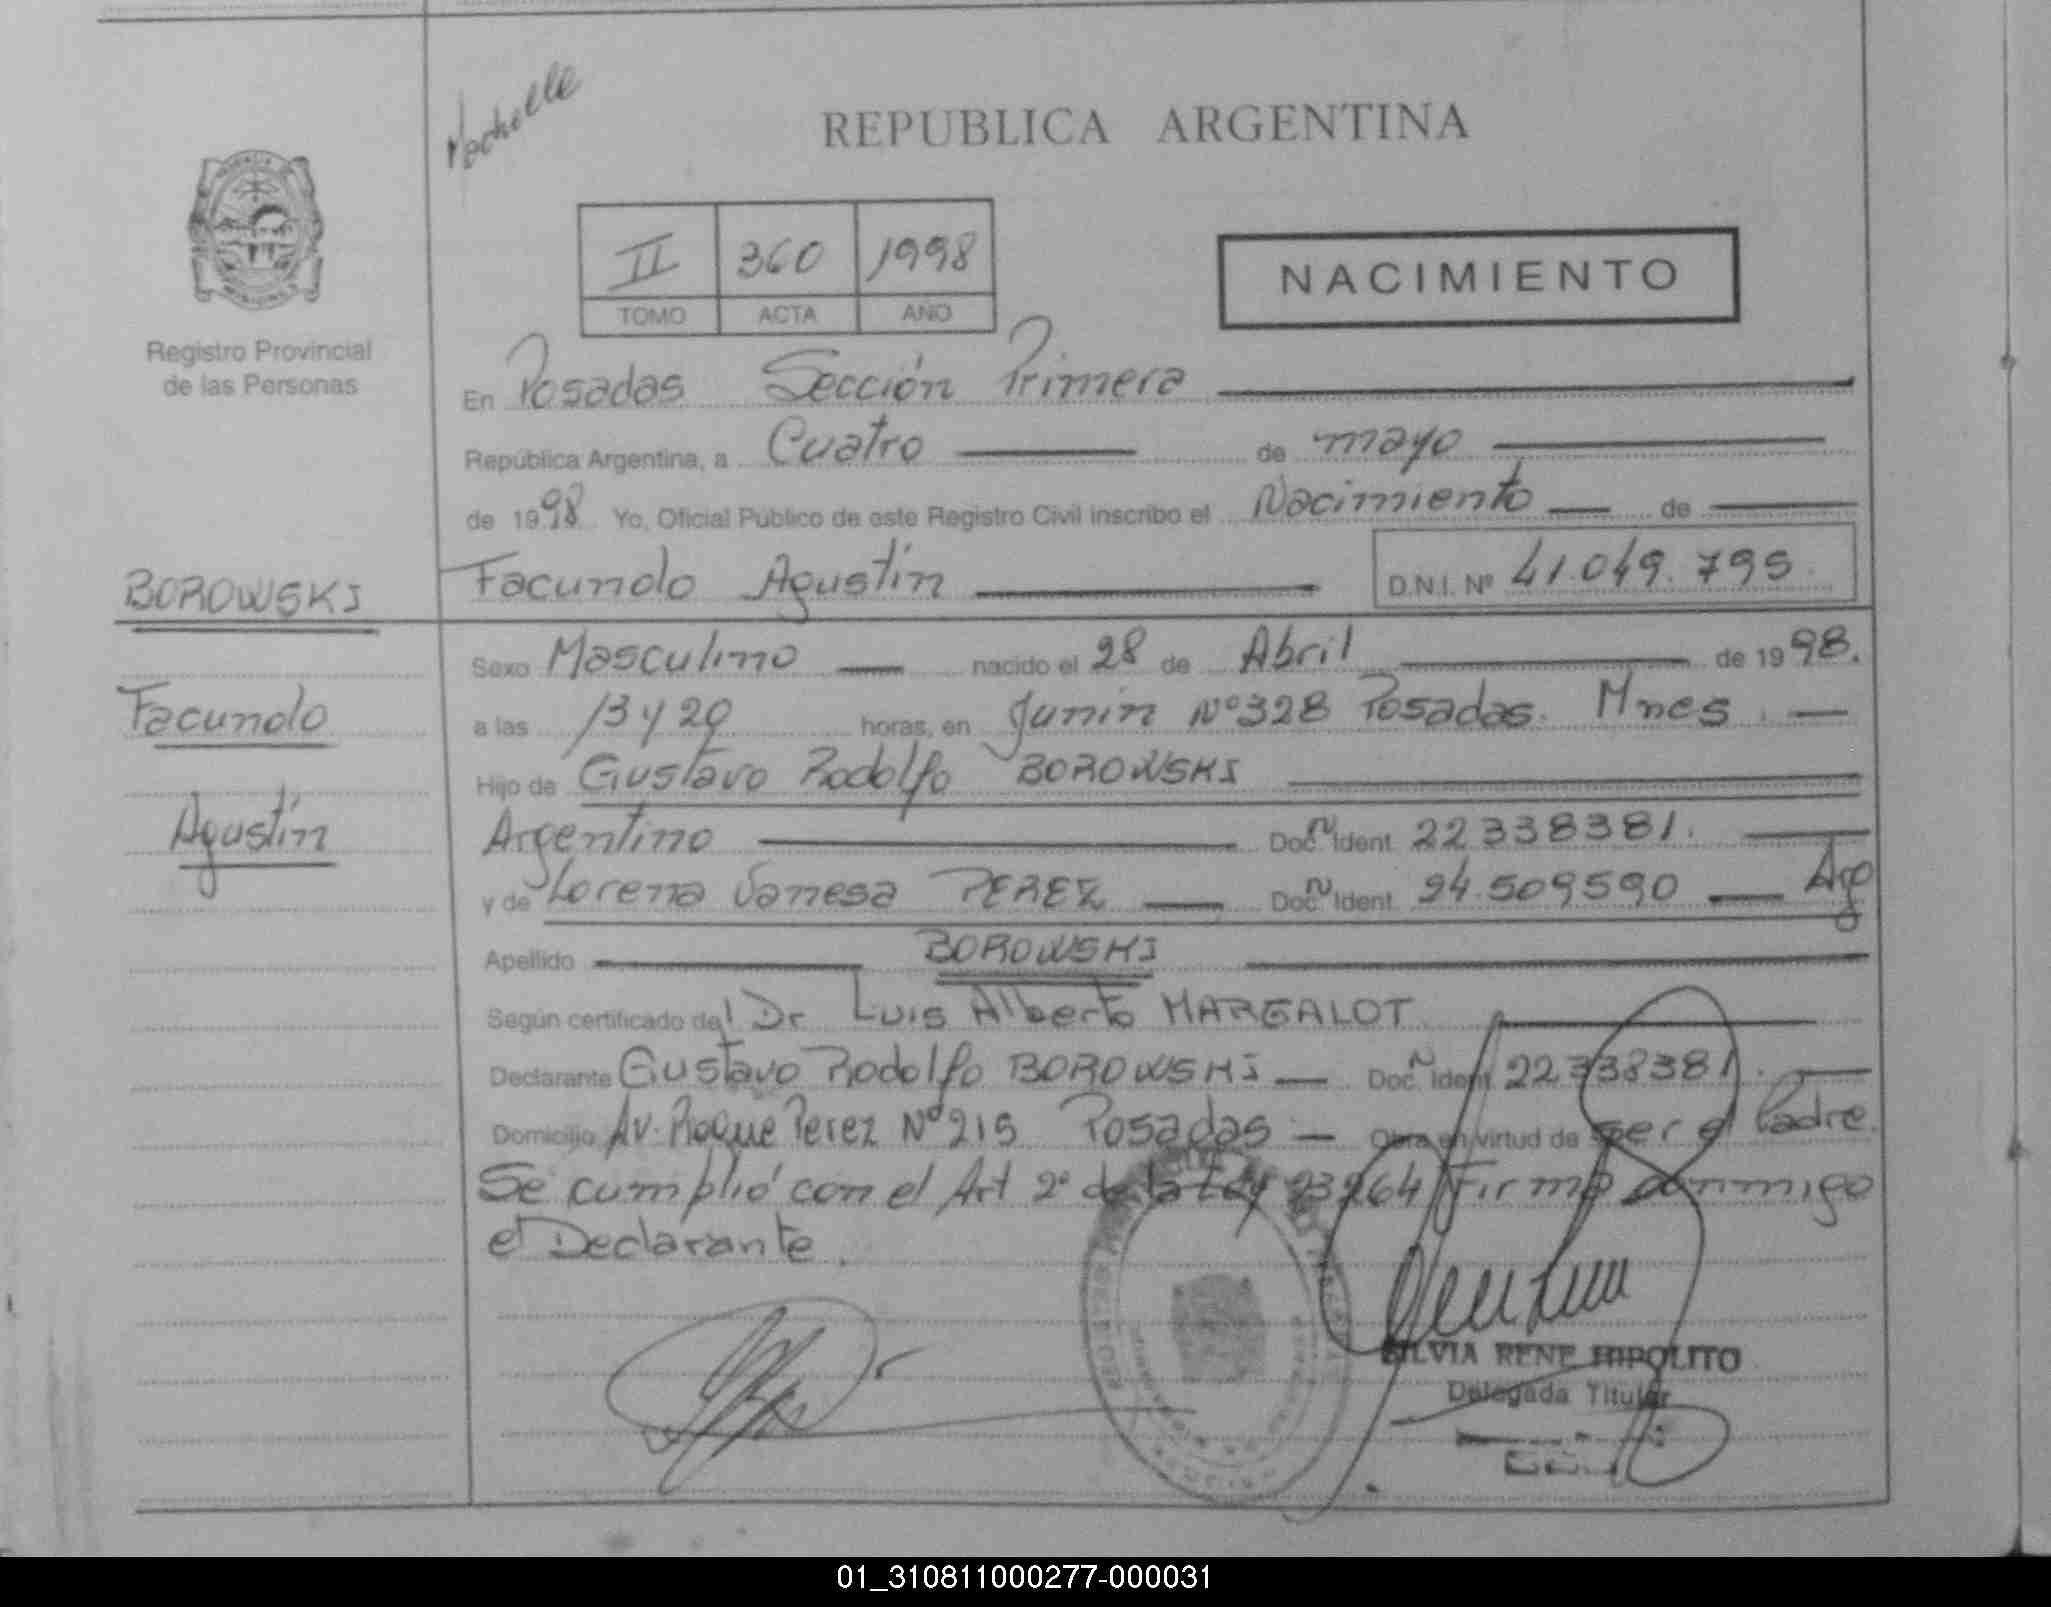 REPUBLICA ARGENTINA
II 360 1998
TOMO ACTA AÑO
NACIMIENTO
Registro Provincial
de las Personas
En Posadas Sección Primera
República Argentina, a Cuatro de mayo
de 1998 Yo, Oficial Público de este Registro Civil inscribo el Nacimiento de
BOROWSKI
Facundo Agustín D.N.I. Nº 41.049.795
Sexo Masculino nacido el 28 de Abril de 1998.
Facundo
a las 13 y 20 horas, en Junin Nº 328 Posadas. Mnes.
Hijo de Gustavo Rodolfo BOROWSKI
Agustín
Argentino Doc. Ident. 22338381.
y de Lorena Vanesa PEREZ Doc. Ident. 24.509590 Arg
Apellido BOROWSKI
Según certificado del Dr Luis Alberto MARGALOT
Declarante Gustavo Rodolfo BOROWSKI Doc. Ident. 22338381.
Domicilio Av. Roque Perez Nº 215 Posadas Obra en virtud de ser el Padre.
Se cumplió con el Art 2º de la Ley 23264 Firma conmigo
el Declarante.
SILVIA RENE HIPOLITO
Delegada Titular
01_310811000277-000031